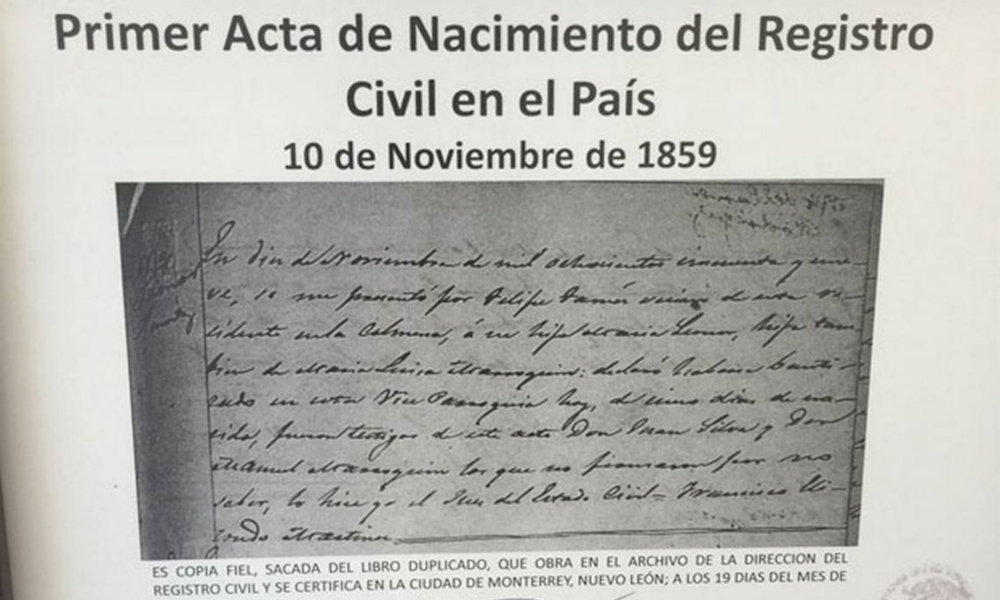 Primer Acta de Nacimiento del Registro
Civil en el País
10 de Noviembre de 1859
En diez de Noviembre de mil ochocientos cincuenta y nue-
ve, se me presentó por Felipe Tamés vecino de esta re-
sidente en la Colmena, á su hija Maria Leonor, hija tam-
bien de Maria Luisa Marroquin: declaró haberse bauti-
zado en esta Vice Parroquia hoy, de cinco dias de na-
cida, fueron testigos de este acto Don Juan Silva y Don
Manuel Marroquin los que no firmaron por no
saber, lo hice yo el Juez del Estado Civil = Francisco Eli-
zondo Martinez
ES COPIA FIEL, SACADA DEL LIBRO DUPLICADO, QUE OBRA EN EL ARCHIVO DE LA DIRECCION DEL
REGISTRO CIVIL Y SE CERTIFICA EN LA CIUDAD DE MONTERREY, NUEVO LEÓN; A LOS 19 DIAS DEL MES DE